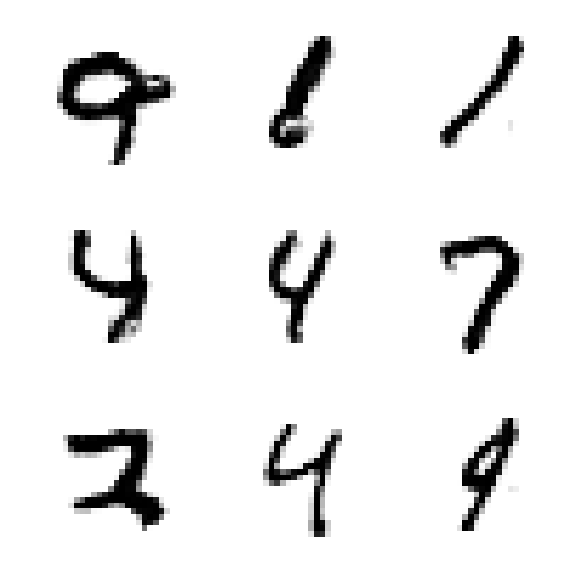 9 6 1
4 4 7
2 4 9